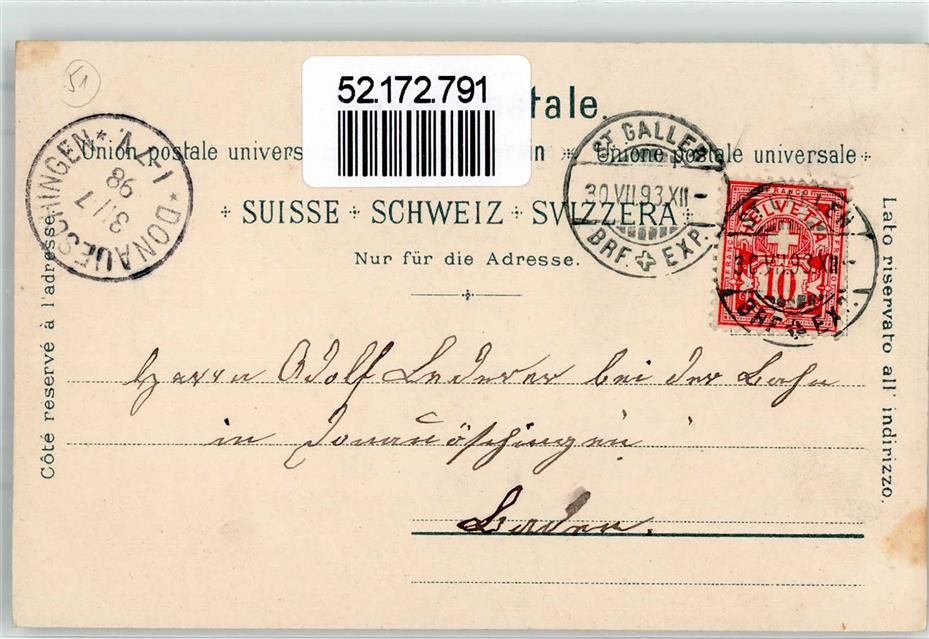 51
52.172.791
tale.
Union postale univers n ✳ Unione postale universale
SUISSE SCHWEIZ SVIZZERA
Nur für die Adresse.
Côté reservé à l'adresse.
Lato riservato all' indirizzo.
DONAUESCHINGEN
31/7
98
ST GALLEN
30.VII.93.XII-
BRF. EXP.
FRANCO
HELVETIA
10
BRF. EXP.
Herrn Adolf Lederer bei der Bahn
in Donauöschingen
Baden.